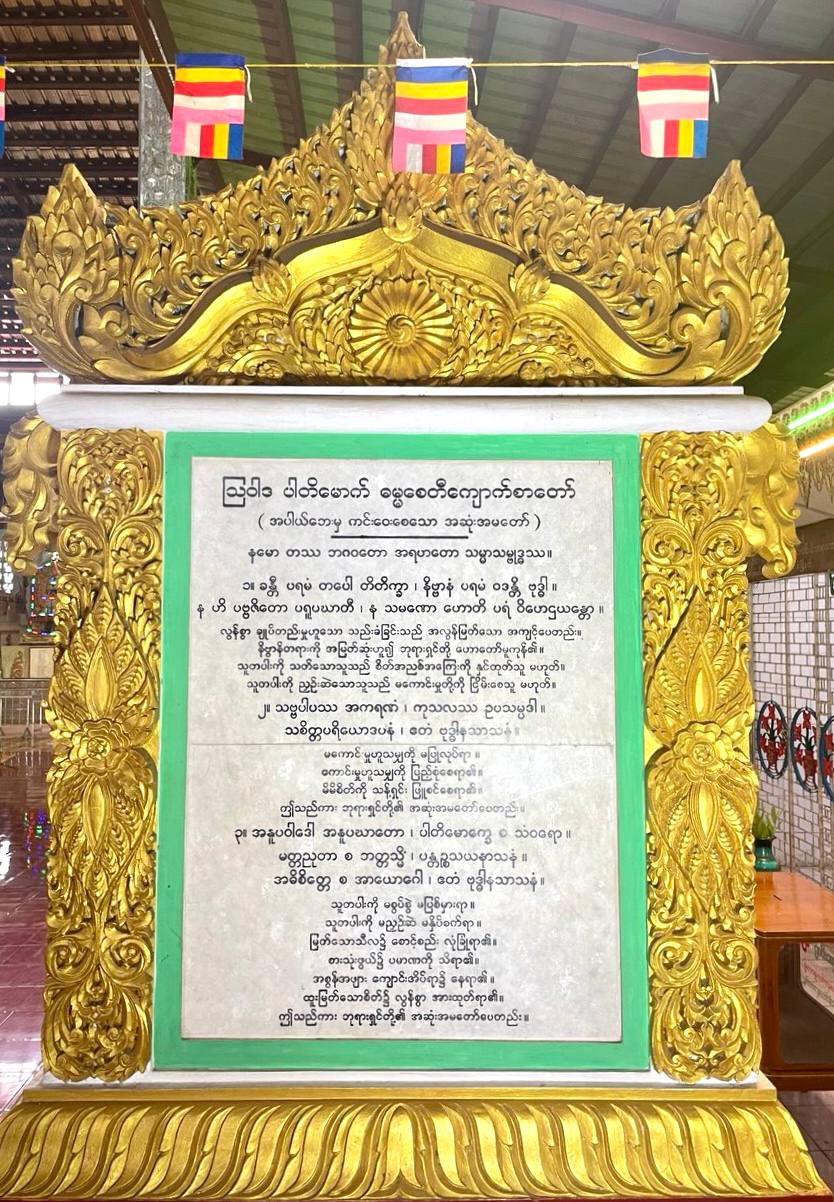 ဩဝါဒ ပါတိမောက် ဓမ္မစေတီကျောက်စာတော်
( အပါယ်ဘေးမှ ကင်းဝေးစေသော အဆုံးအမတော် )
နမော တဿ ဘဂဝတော အရဟတော သမ္မာသမ္ဗုဒ္ဓဿ။
၁။ ခန္တီ ပရမံ တပေါ တိတိက္ခာ ၊ နိဗ္ဗာနံ ပရမံ ဝဒန္တိ ဗုဒ္ဓါ ။
န ဟိ ပဗ္ဗဇိတော ပရူပဃာတီ ၊ န သမဏော ဟောတိ ပရံ ဝိဟေဌယန္တော ။
လွန်စွာ ချုပ်တည်းမှုဟူသော သည်းခံခြင်းသည် အလွန်မြတ်သော အကျင့်ပေတည်း။
နိဗ္ဗာန်တရားကို အမြတ်ဆုံးဟူ၍ ဘုရားရှင်တို့ ဟောတော်မူကုန်၏။
သူတပါးကို သတ်သောသူသည် စိတ်အညစ်အကြေးကို နှင်ထုတ်သူ မဟုတ်။
သူတပါးကို ညှဉ်းဆဲသောသူသည် မကောင်းမှုတို့ကို ငြိမ်းစေသူ မဟုတ်။
၂။ သဗ္ဗပါပဿ အကရဏံ ၊ ကုသလဿ ဥပသမ္ပဒါ ။
သစိတ္တပရိယောဒပနံ ၊ ဧတံ ဗုဒ္ဓါနသာသနံ ။
မကောင်းမှုဟူသမျှကို မပြုလုပ်ရာ ။
ကောင်းမှုဟူသမျှကို ပြည့်စုံစေရာ၏။
မိမိစိတ်ကို သန့်ရှင်း ဖြူစင်စေရာ၏။
ဤသည်ကား ဘုရားရှင်တို့၏ အဆုံးအမတော်ပေတည်း။
၃။ အနူပဝါဒေါ အနူပဃာတော ၊ ပါတိမောက္ခေ စ သံဝရော ။
မတ္တညုတာ စ ဘတ္တသ္မိံ ၊ ပန္တဉ္စသယနာသနံ ။
အဓိစိတ္တေ စ အာယောဂေါ ၊ ဧတံ ဗုဒ္ဓါနသာသနံ ။
သူတပါးကို မစွပ်စွဲ မပြစ်မှားရာ ။
သူတပါးကို မညှဉ်းဆဲ မနှိပ်စက်ရာ ။
မြတ်သောသီလ၌ စောင့်စည်း လုံခြုံရာ၏။
စားသုံးဖွယ်၌ ပမာဏကို သိရာ၏။
အစွန်အဖျား ကျောင်းအိပ်ရာ၌ နေရာ၏ ။
ထူးမြတ်သောစိတ်၌ လွန်စွာ အားထုတ်ရာ၏။
ဤသည်ကား ဘုရားရှင်တို့၏ အဆုံးအမတော်ပေတည်း ။